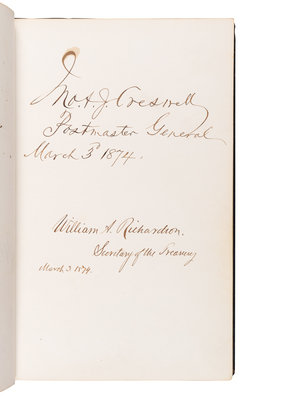 Jno. A. J. Creswell
Postmaster General
March 3d 1874.
William A. Richardson.
Secretary of the Treasury
March 3 1874.